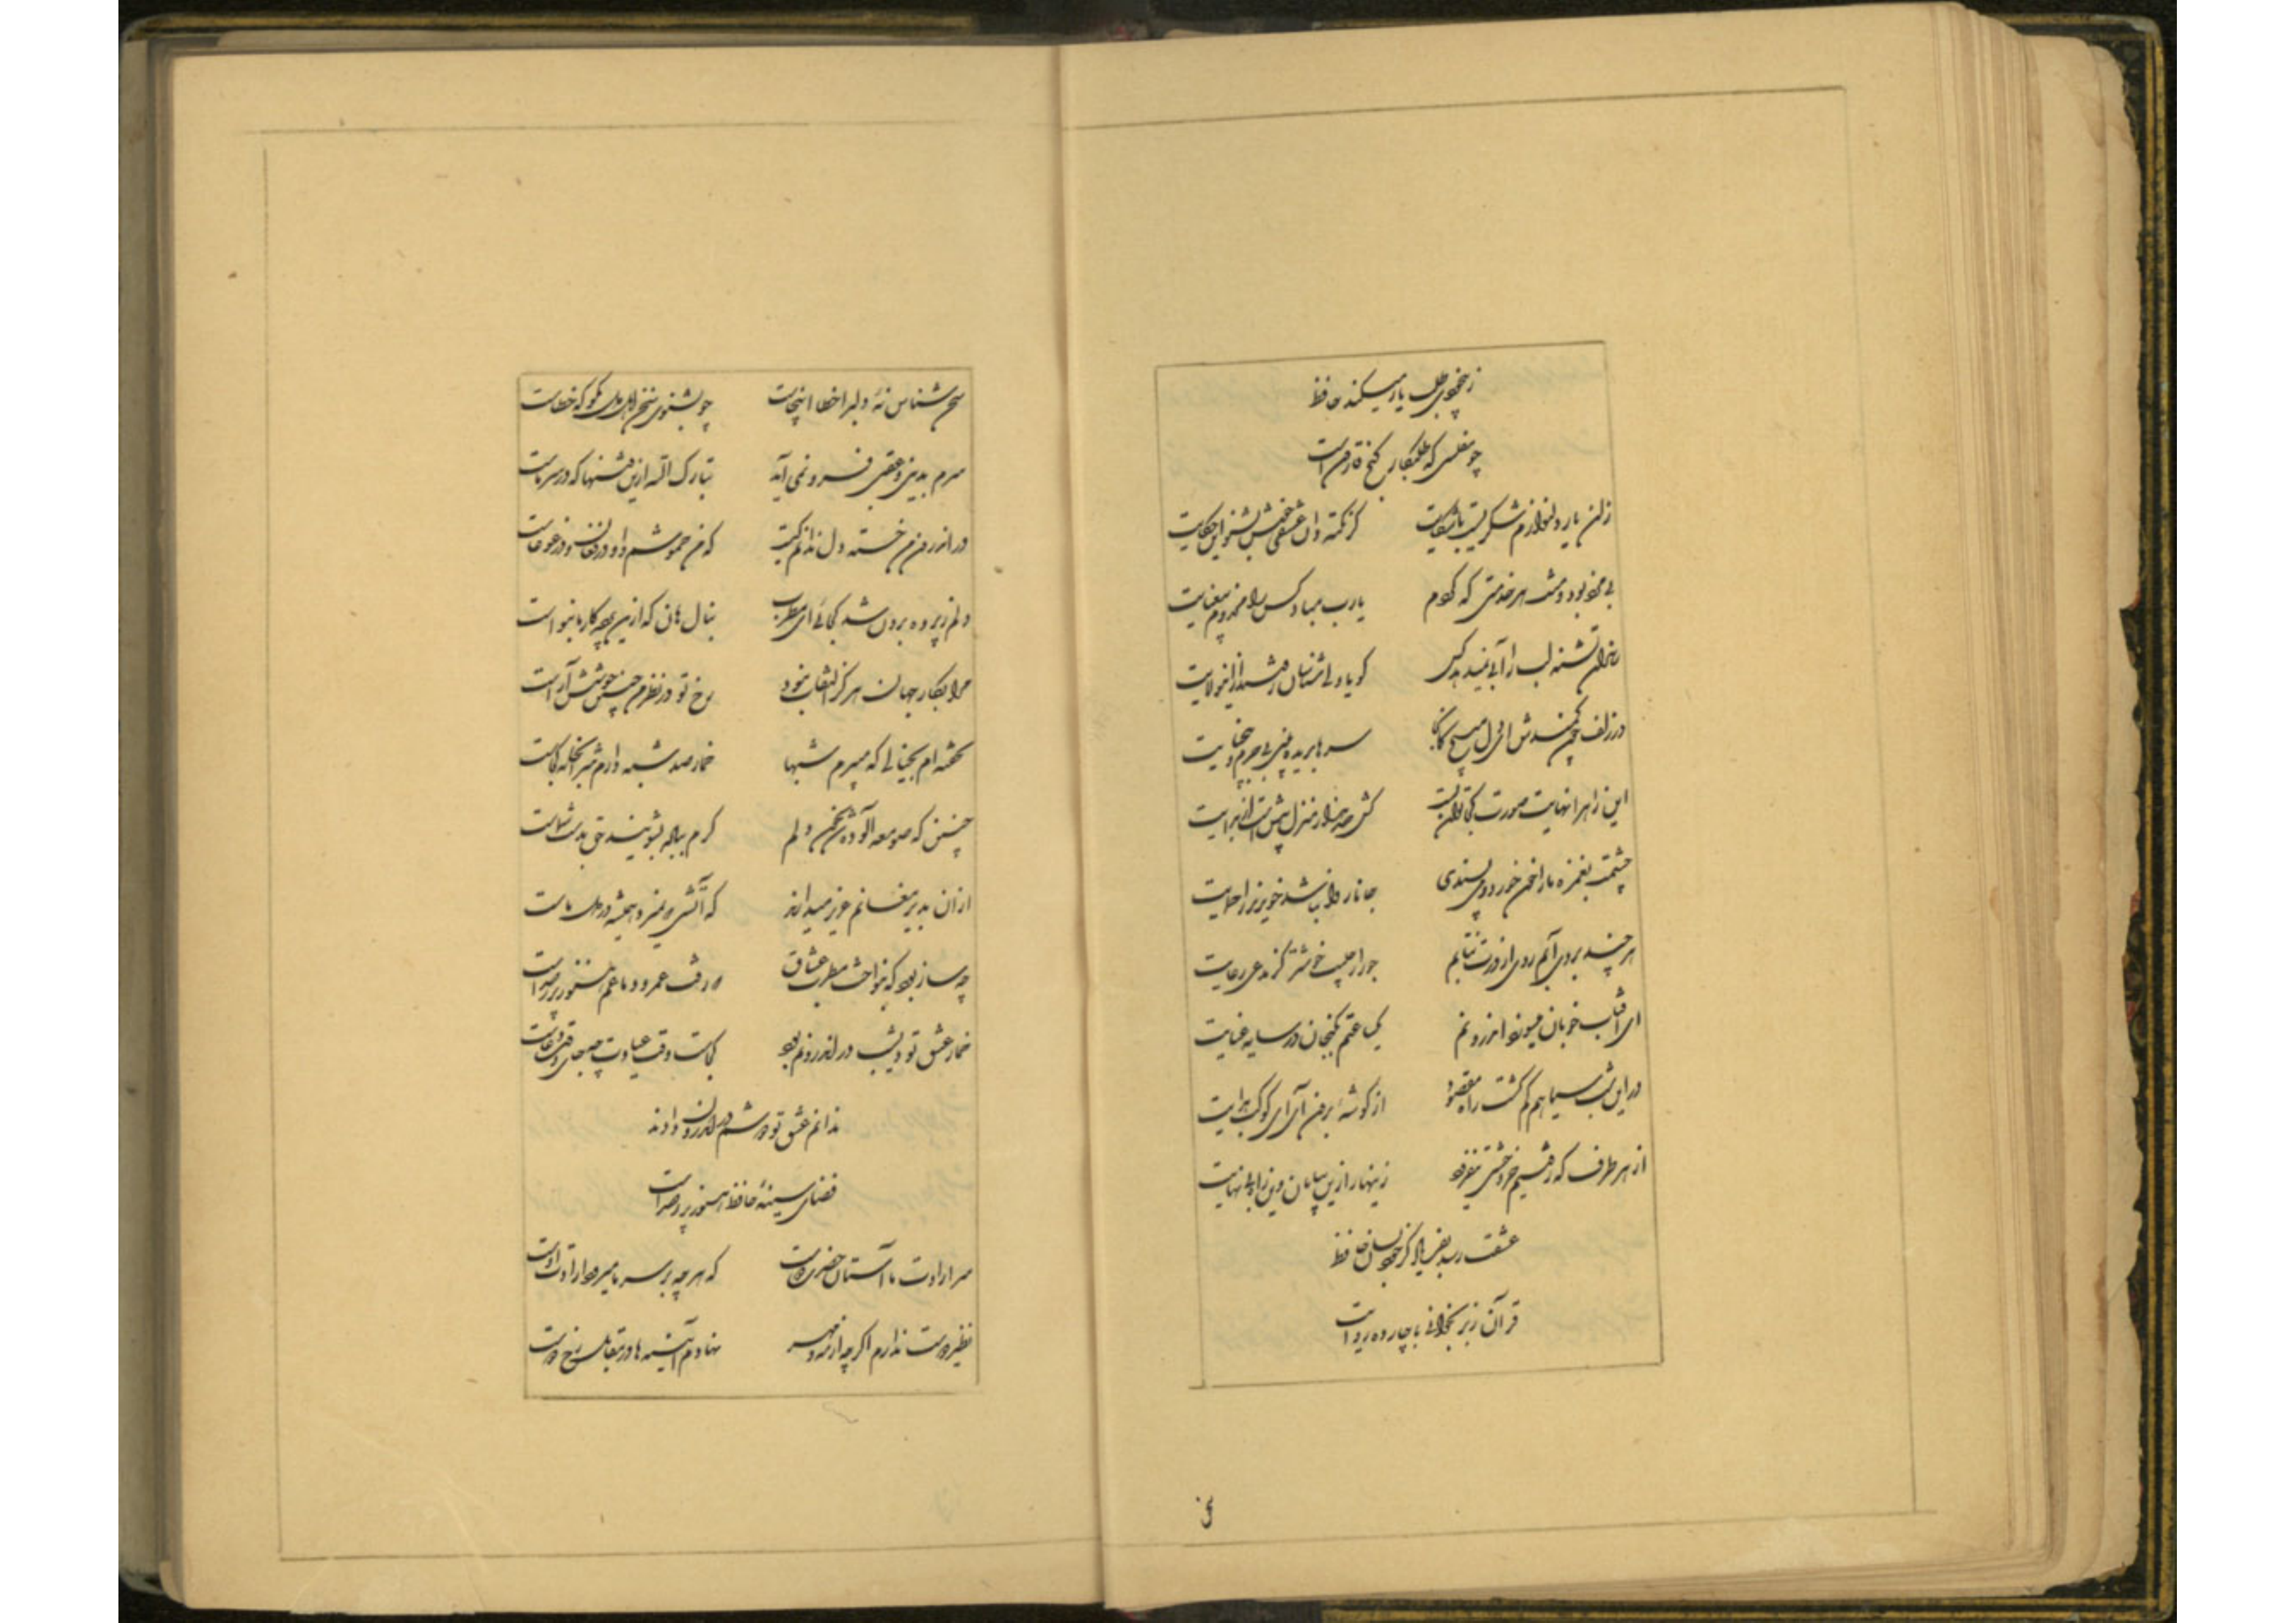 ز بیخودی طلب یار میکند حافظ
چو مفلسی که طلبکار گنج قارونست
زان یار دلنوازم شکریست با شکایت گر نکته دان عشقی خوش بشنو این حکایت
بی مزد بود و منت هر خدمتی که کردم یارب مباد کس را مخدوم بیعنایت
رندان تشنه لب را آبی نمیدهد کس گویا ولی شناسان رفتند ازین ولایت
در زلف چون کمندش ای دل مپیچ کانجا سرها بریده بینی بی جرم و بی جنایت
این راه را نهایت صورت کجا توان بست کش صد هزار منزل بیش است در بدایت
چشمت بغمزه ما را خون خورد و می پسندی جانا روا نباشد خونریز را حمایت
هر چند بردی آبم روی از درت نتابم جور از حبیب خوشتر کز مدعی رعایت
ای آفتاب خوبان میسوزد اندرونم یکساعتم بگنجان در سایه عنایت
در این شب سیاهم گم گشت راه مقصود از گوشهٔ برون آی ای کوکب هدایت
از هر طرف که رفتیم جز وحشتم نیفزود زینهار ازین بیابان وین راه بی نهایت
عشقت رسد بفریاد گر خود بسان حافظ
قرآن ز بر بخوانی با چارده روایت
سخن شناس نهٔ دلبرا خطا اینجاست چو بشنوی سخن اهل دل مگو که خطاست
سرم بدنیی و عقبی فرو نمی آید تبارک الله ازین فتنها که در سر ماست
در اندرون من خسته دل ندانم کیست که من خموشم و او در فغان و در غوغاست
دلم ز پرده برون شد کجائی ای مطرب بنال هان که ازین پرده کار ما بنواست
مرا بکار جهان هرگز التفات نبود رخ تو در نظرم چنین خوشش آراست
نخفته ام بخیالی که میپرم شبها خمار صد شبه دارم شرابخانه کجاست
چنین که صومعه آلوده شد بخون دلم گرم بباده بشوئید حق بدست شماست
از آن بدیر مغانم عزیز میدارند که آتشی که نمیرد همیشه در دل ماست
چه ساز بود که بنواخت مطرب عشاق که رفت عمر و دماغم هنوز پر ز صداست
خمار عشق تو دیشب در اندرونم بود
ندای عشق تو دوشم در اندرون دادند
فضای سینهٔ حافظ هنوز پر ز صداست
سر ارادت ما آستان حضرت دوست که هر چه بر سر ما میرود ارادت اوست
نظیر دوست ندیدم اگرچه از مه و مهر نهادم آینه ها در مقابل رخ دوست